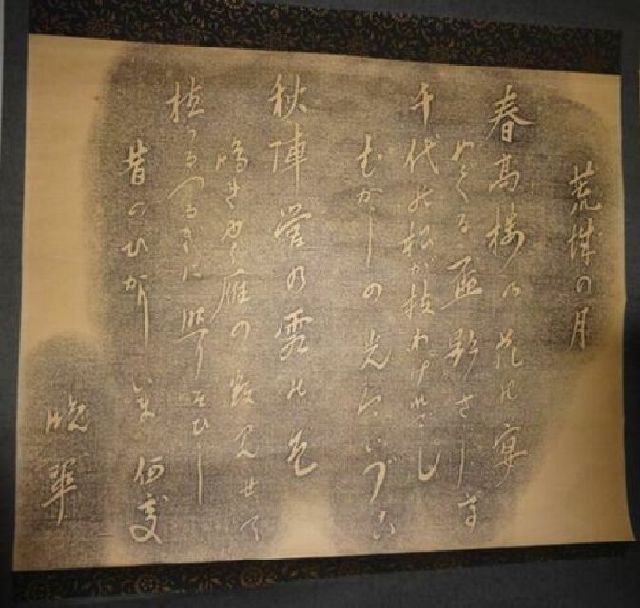 荒城の月
春高楼の花の宴
めぐる盃影さして
千代の松が枝わけいでし
むかしの光今いづこ
秋陣営の霜の色
鳴き行く雁の数見せて
植うるつるぎに照りそひし
昔のひかり今何處
晩翠